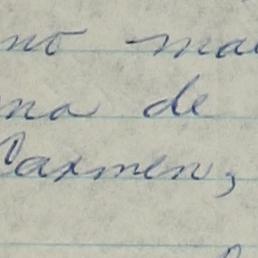 no ma
na de
Carmen,